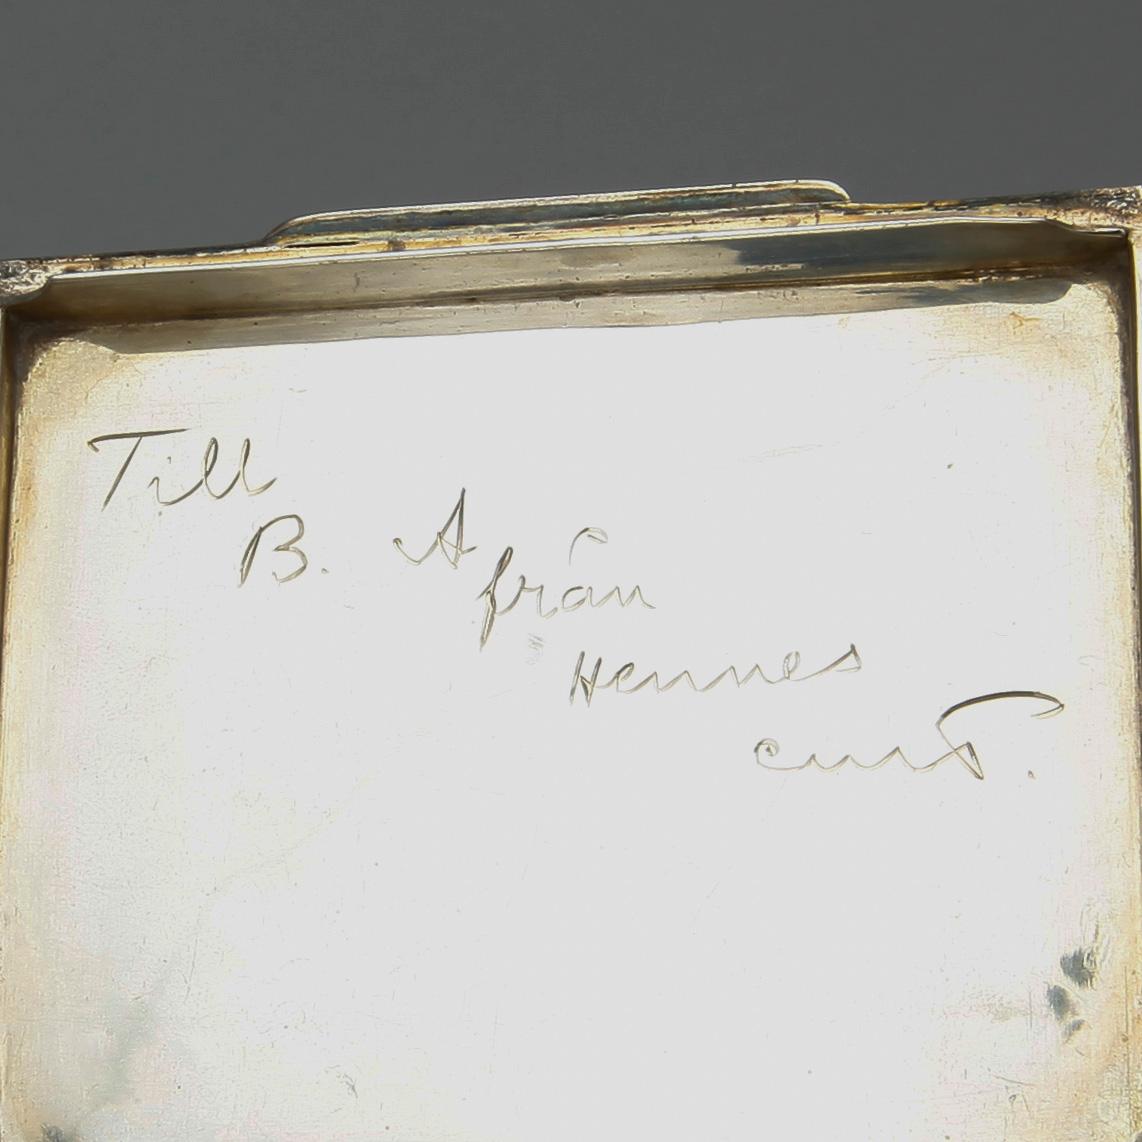 Till
B. A
från
Hennes
Curt.